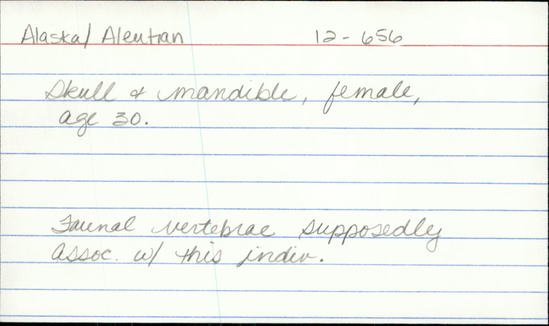 Alaska/Aleutian 12-656
Skull & mandible, female,
age 30.
Faunal vertebrae supposedly
assoc. w/ this indiv.